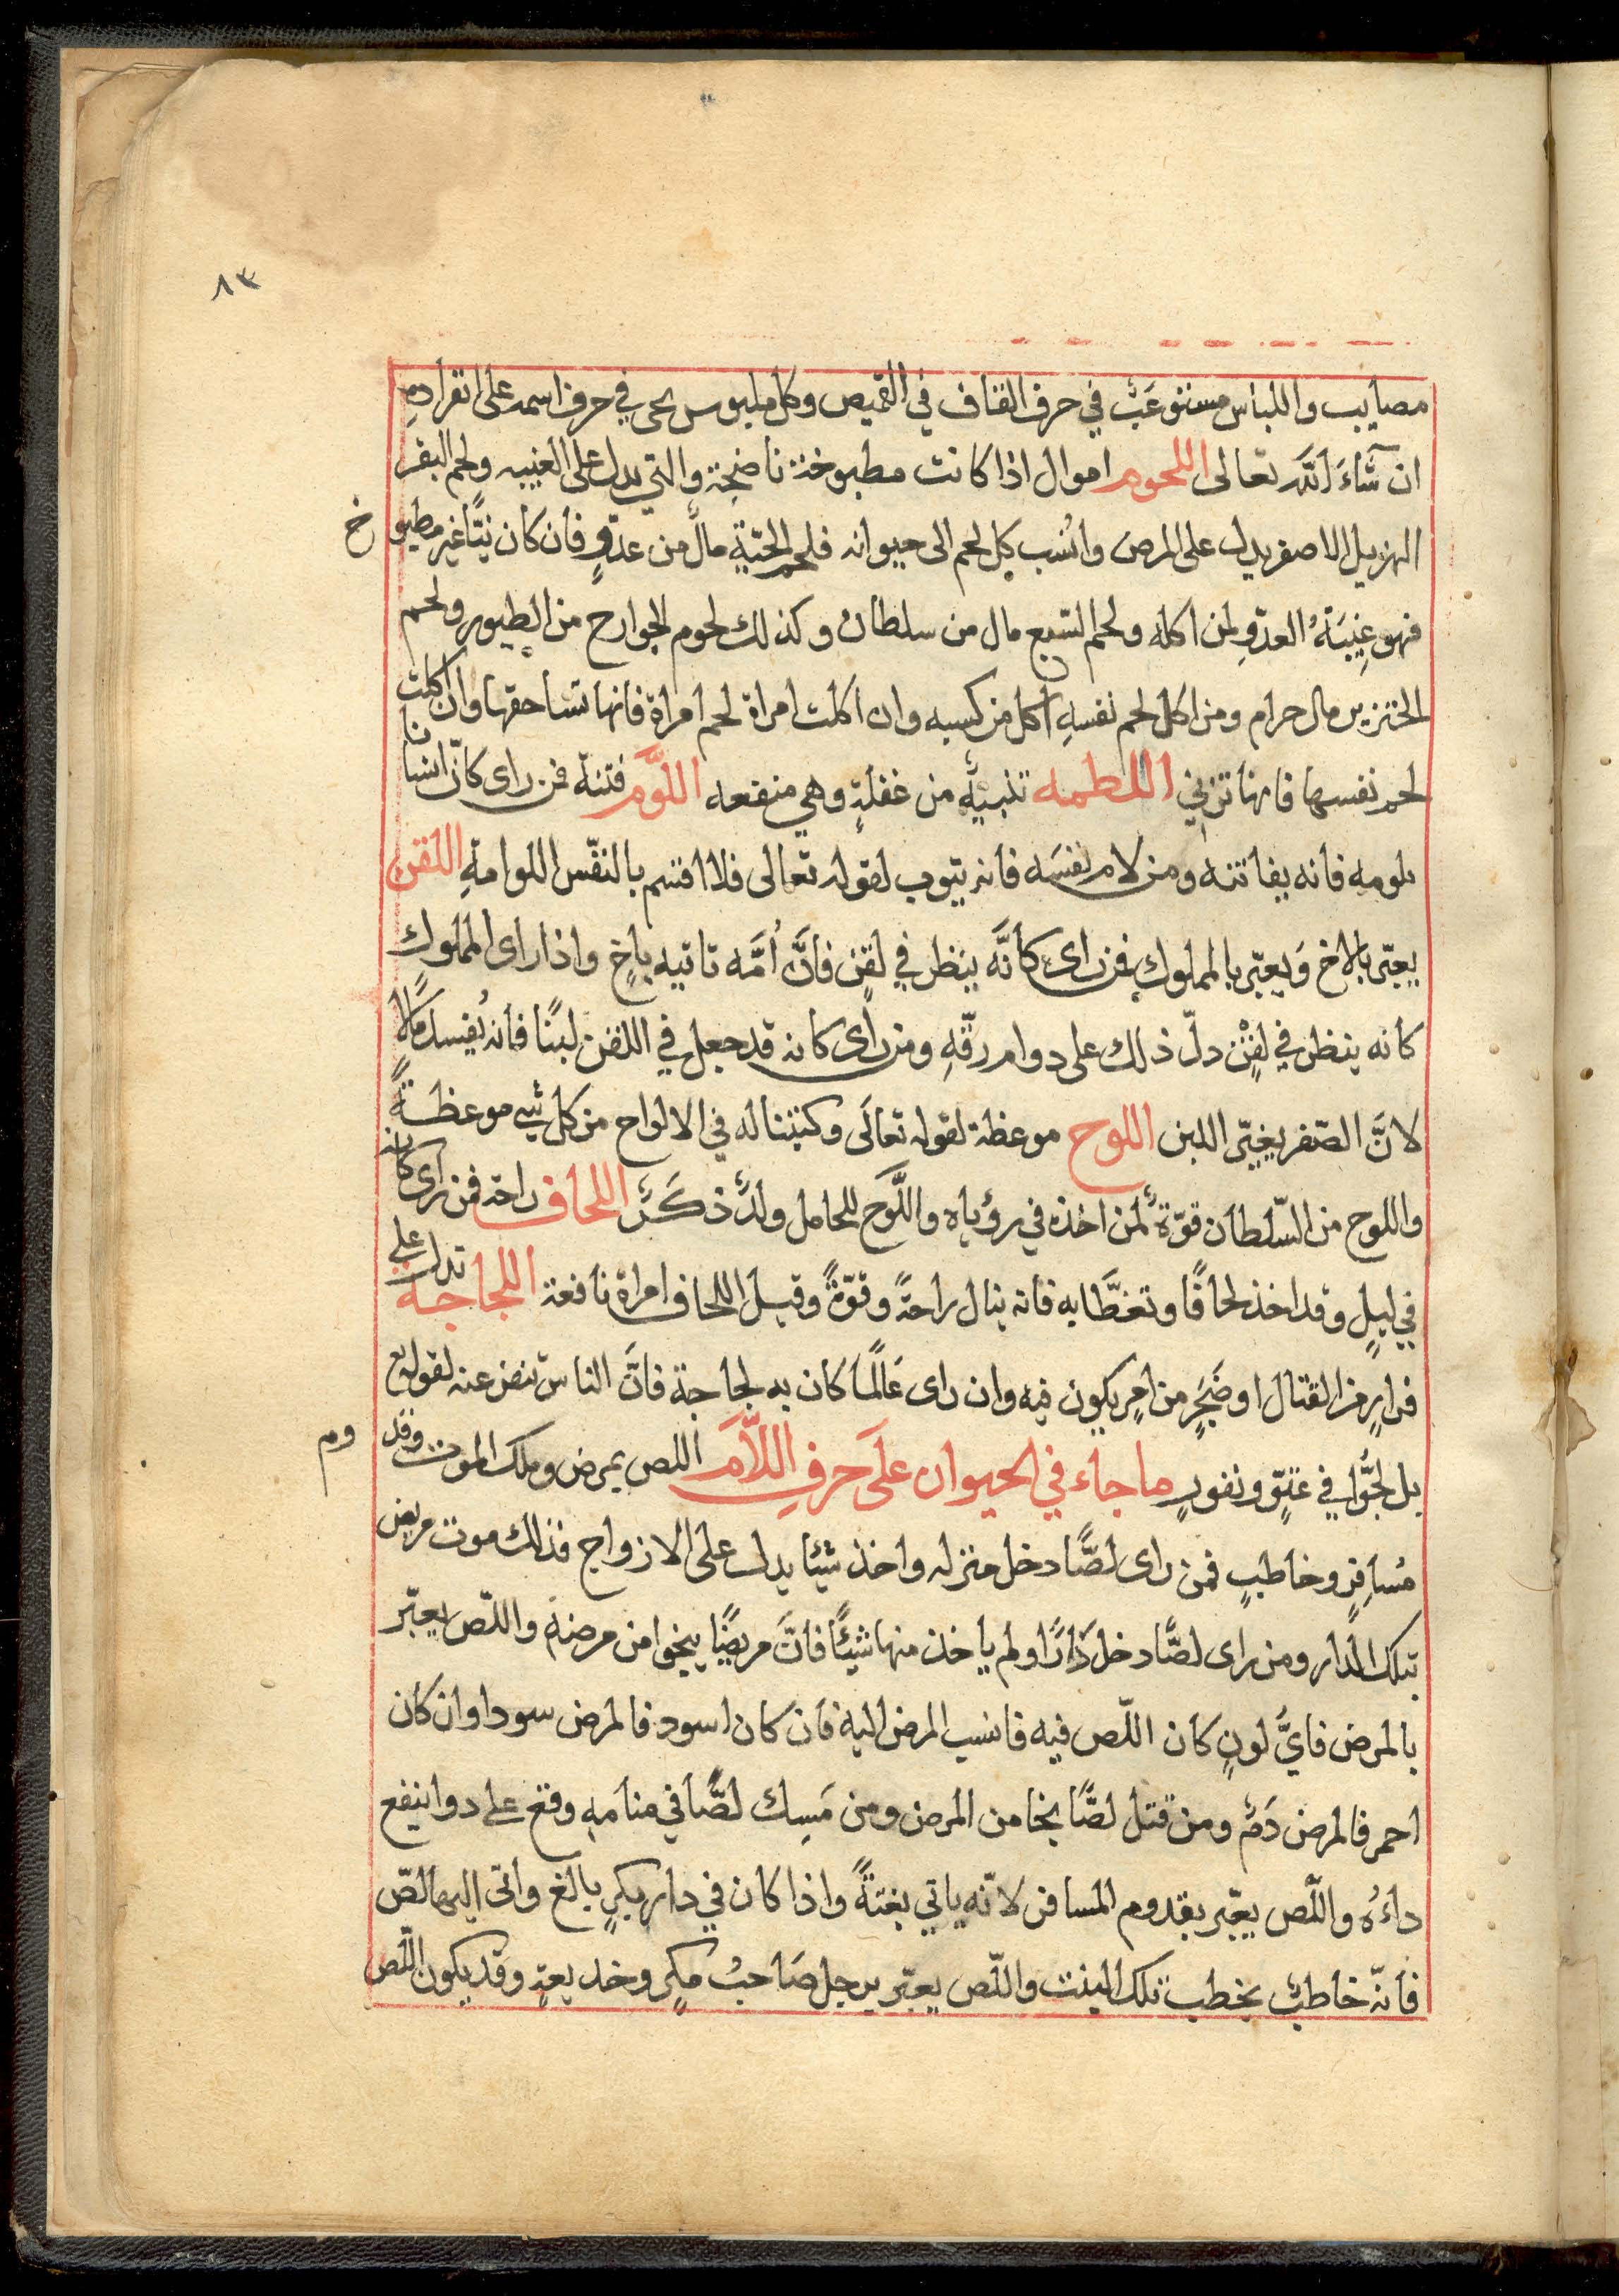 ٨٣
مصايب واللباس مستوعَبٌ في حرف القاف في القميص وكل ملبوس يجى في حرف اسمه على انفرادهِ
ان شَآءَ اللَّه تعالى اللحوم اموال اذا كانت مطبوخة ناضجة والتي تدل على الغيبه ولحم البقر
الهزيل الاصفر يدل على المرض وانُسب كل لحم الى حيوانه فلحم الحيّةِ مالٌ من عدوٍّ فان كان نيّاً غير مطبوخ
فهو غِيبَةُ العدوِّ لمن اكله ولحم السَّبع مال من سلطان وكذلك لحوم الجوارح من الطيور ولحم
الخنزير مال حرام ومن اكل لحم نفسهِ اكل من كسبه وان اكلت امراة لحم امراة فانها تساحقها وان اكلت
لحم نفسها فانها تزني اللطمه تنبيهٌ من غفلةٍ وهي منفعه اللَّوم فتنة فمن راى كانّ انسانا
يلومه فانه يفاتنه ومن لام نفسَه فانه يتوب لقوله تعالى فلا اقسم بالنفس اللوامةِ اللقن
يعبّر بالاخ وَيعبّر بالمملوك فمن راى كأنَّه ينظر في لقنٍ فأنَّ أمَّه تاتيه باخٍ واذا راى المملوك
كانه ينظر في لقنٍ دلّ ذلك على دوام رقّهِ ومن راى كانه قد جعل في اللقن لبنًا فأنه يُفسد مالًا
لانَّ الصّفر يغيّر اللبن اللوح موعظة لقوله تعالَى وكتبنا له في الالواح من كل شي موعظةً
واللوح من السّلطان قوّةٌ لمن اخذه في رؤياه واللَّوح للحامل ولدٌ ذكَرٌ اللحاف راحة فمن رأى كانه
في ليلٍ وقد اخذ لحافًا وتغطَّا به فانه ينال راحةً وقوّةً وقيل اللحاف امراة نافعة اللجاجة تدل على
فرارٍ من القتال او ضَجَرٍ من امرٍ يكون فيه وان راى عَالمًا كان به لجاجة فانَّ الناس تنفض عنه لقوله تع
بل لجُّوا في عتوٍّ ونفورٍ ما جاء في الحيوان على حَرفِ اللاَّم اللص يمرض وملك الموت وقدوم
مُسافرٍ وخاطبٍ فمن راى لصًّا دخل منزله واخذ شيئا يدل على الازواج فذلك موت مريض
بتلك الدار ومن راى لصًّا دخل دَارًا ولم ياخذ منها شيئًا فانّ مريضًا ينجوا من مرضهِ واللّص يعبّر
بالمرض فايَّ لونٍ كان اللّص فيه فانسب المرض اليه فان كان اسود فالمرض سودا وان كان
احمر فالمرض دَمٌ ومن قتل لصًّا نجا من المرض ومن مَسِك لصًّا في منامهِ وقع على دوا ينفع
داءَهُ واللّص يعبّر بقدوم المسافر لانّه ياتي بغتةً واذا كان في دار بكرٍ بالغ واتى اليها لصّ
فانّه خاطبٌ يخطب تلك البنت واللّص يعبّر برجل صَاحبُ مكرٍ وخديعةٍ وقد يكون اللّص